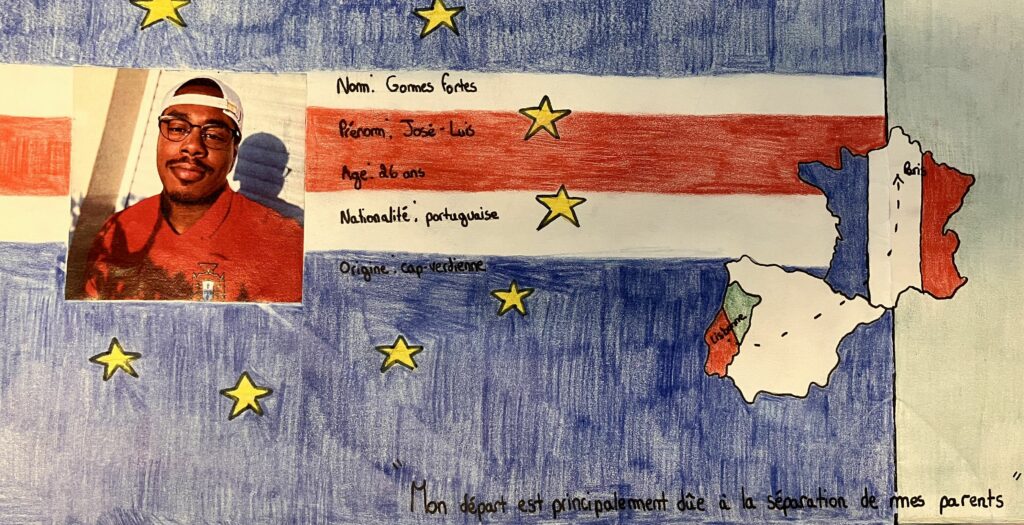 Nom: Gomes Fortes
Prénom: José-Luis
Age: 26 ans
Nationalité: portuguaise
Origine: cap-verdienne
Paris
Lisbonne
"Mon départ est principalement dûe à la séparation de mes parents"